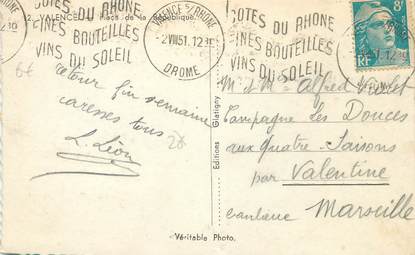 2. VALENCE - Place de la République.
COTES DU RHONE
FINES BOUTEILLES
VINS DU SOLEIL
VALENCE S/RHONE
-2 VIII 51. 12
DROME
COTES DU RHONE
FINES BOUTEILLES
VINS DU SOLEIL
8F
RF
6€
retour fin semaine
caresses tous
L. Léon
2€
Editions Glatigny
M. & M = Alfred
Campagne les Douces
aux Quatre-Saisons
par Valentine
banlieue Marseille
Véritable Photo.